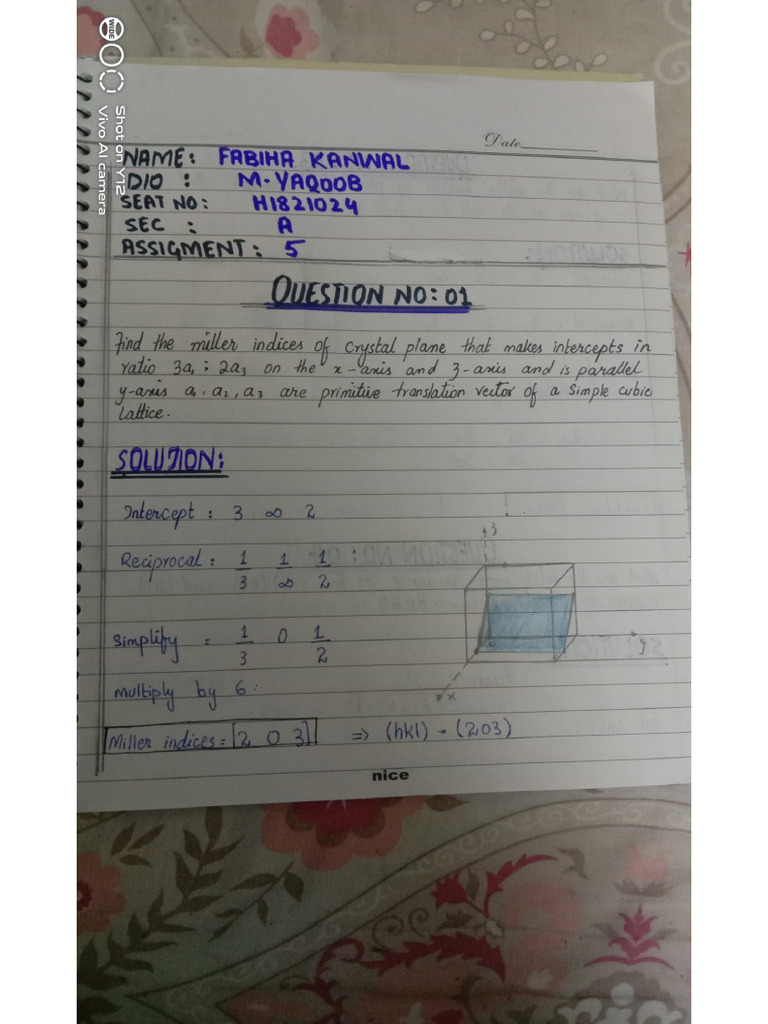 Date
NAME: FABIHA KANWAL
D/O : M-YAQOOB
SEAT NO: H1821024
SEC : A
ASSIGMENT: 5
QUESTION NO: 01
Find the miller indices of crystal plane that makes intercepts in
ratio 3a₁ : 2a₃ on the x-axis and z-axis and is parallel
y-axis a₁, a₂, a₃ are primitive translation vector of a Simple cubic
lattice.
SOLUTION:
Intercept : 3 ∞ 2
Reciprocal : 1/3 1/∞ 1/2
Simplify = 1/3 0 1/2
multiply by 6:
Miller indices = [2 0 3] ⇒ (hkl) - (203)
z
y
x
nice
Shot on Y12
Vivo AI camera